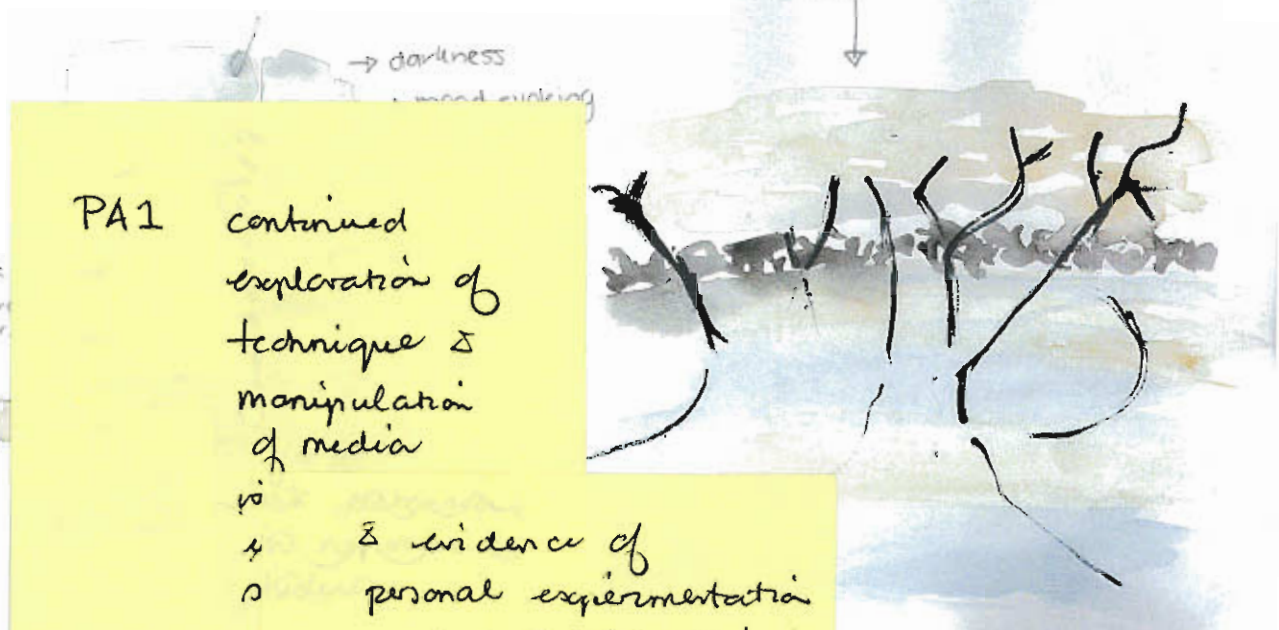 → darkness
mood evoking
PA1 continued
exploration of
technique &
manipulation
of media
& evidence of
personal expiermentation